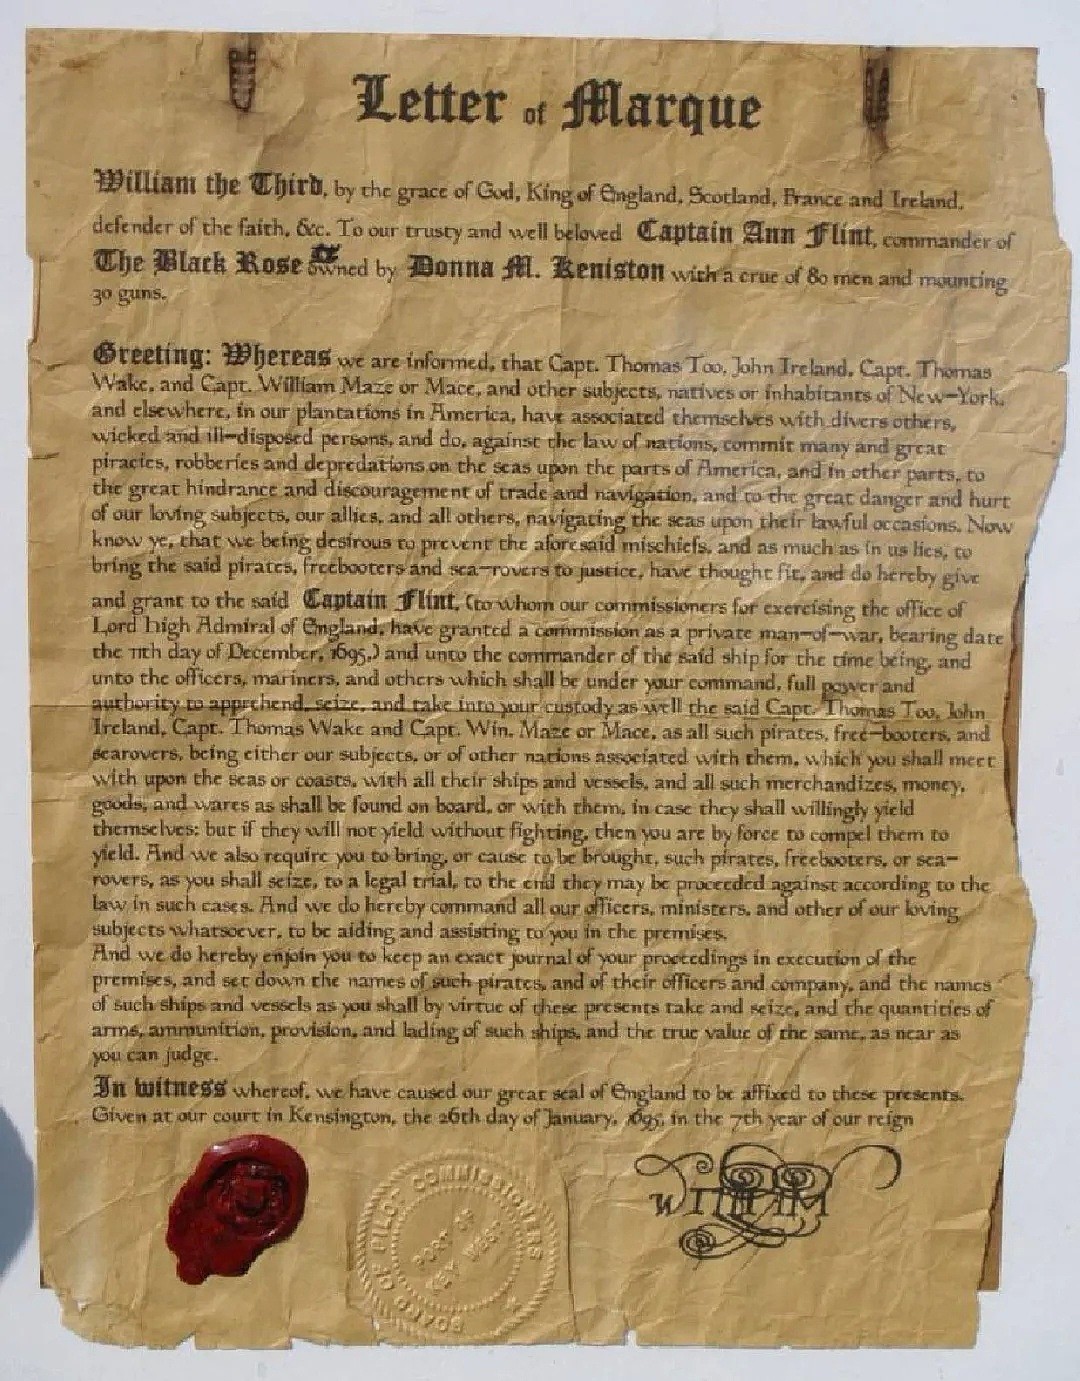 Letter of Marque
William the Third, by the grace of God, King of England, Scotland, France and Ireland,
defender of the faith, &c. To our trusty and well beloved Captain Ann Flint, commander of
The Black Rose owned by Donna M. Keniston with a crue of 80 men and mounting
30 guns.
Greeting: Whereas we are informed, that Capt. Thomas Too, John Ireland, Capt. Thomas
Wake, and Capt. William Maze or Mace, and other subjects, natives or inhabitants of New-York,
and elsewhere, in our plantations in America, have associated themselves with divers others,
wicked and ill-disposed persons, and do, against the law of nations, commit many and great
piracies, robberies and depredations on the seas upon the parts of America, and in other parts, to
the great hindrance and discouragement of trade and navigation, and to the great danger and hurt
of our loving subjects, our allies, and all others, navigating the seas upon their lawful occasions. Now
know ye, that we being desirous to prevent the aforesaid mischiefs, and as much as in us lies, to
bring the said pirates, freebooters and sea-rovers to justice, have thought fit, and do hereby give
and grant to the said Captain Flint, (to whom our commissioners for exercising the office of
Lord high Admiral of England, have granted a commission as a private man-of-war, bearing date
the 11th day of December, 1695,) and unto the commander of the said ship for the time being, and
unto the officers, mariners, and others which shall be under your command, full power and
authority to apprehend, seize, and take into your custody as well the said Capt. Thomas Too, John
Ireland, Capt. Thomas Wake and Capt. Win. Maze or Mace, as all such pirates, free-booters, and
searovers, being either our subjects, or of other nations associated with them, which you shall meet
with upon the seas or coasts, with all their ships and vessels, and all such merchandizes, money,
goods, and wares as shall be found on board, or with them, in case they shall willingly yield
themselves: but if they will not yield without fighting, then you are by force to compel them to
yield. And we also require you to bring, or cause to be brought, such pirates, freebooters, or sea-
rovers, as you shall seize, to a legal trial, to the end they may be proceeded against according to the
law in such cases. And we do hereby command all our officers, ministers, and other of our loving
subjects whatsoever, to be aiding and assisting to you in the premises.
And we do hereby enjoin you to keep an exact journal of your proceedings in execution of the
premises, and set down the names of such pirates, and of their officers and company, and the names
of such ships and vessels as you shall by virtue of these presents take and seize, and the quantities of
arms, ammunition, provision, and lading of such ships, and the true value of the same, as near as
you can judge.
In witness whereof, we have caused our great seal of England to be affixed to these presents.
Given at our court in Kensington, the 26th day of January, 1695, in the 7th year of our reign
BOARD OF PILOT COMMISSIONERS
PORT OF
KEY WEST